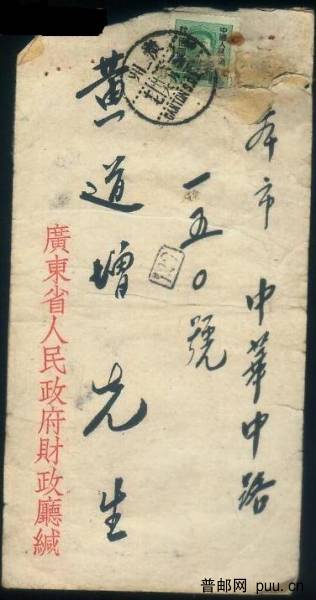 本市 中華中路
一五〇號
黃道增先生
廣東省人民政府財政廳緘
CANTON
普邮网 puu.cn